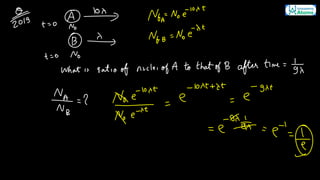 Q
2019
t=0 A 10λ → N_A = N₀ e^{-10λt}
N₀
B λ → N_B = N₀ e^{-λt}
t=0 N₀
What is ratio of nuclei of A to that of B after time = 1/9λ
N_A/N_B = ? N₀ e^{-10λt} / N₀ e^{-λt} = e^{-10λt+λt} = e^{-9λt}
= e^{-9λ · 1/9λ} = e^{-1} = 1/e